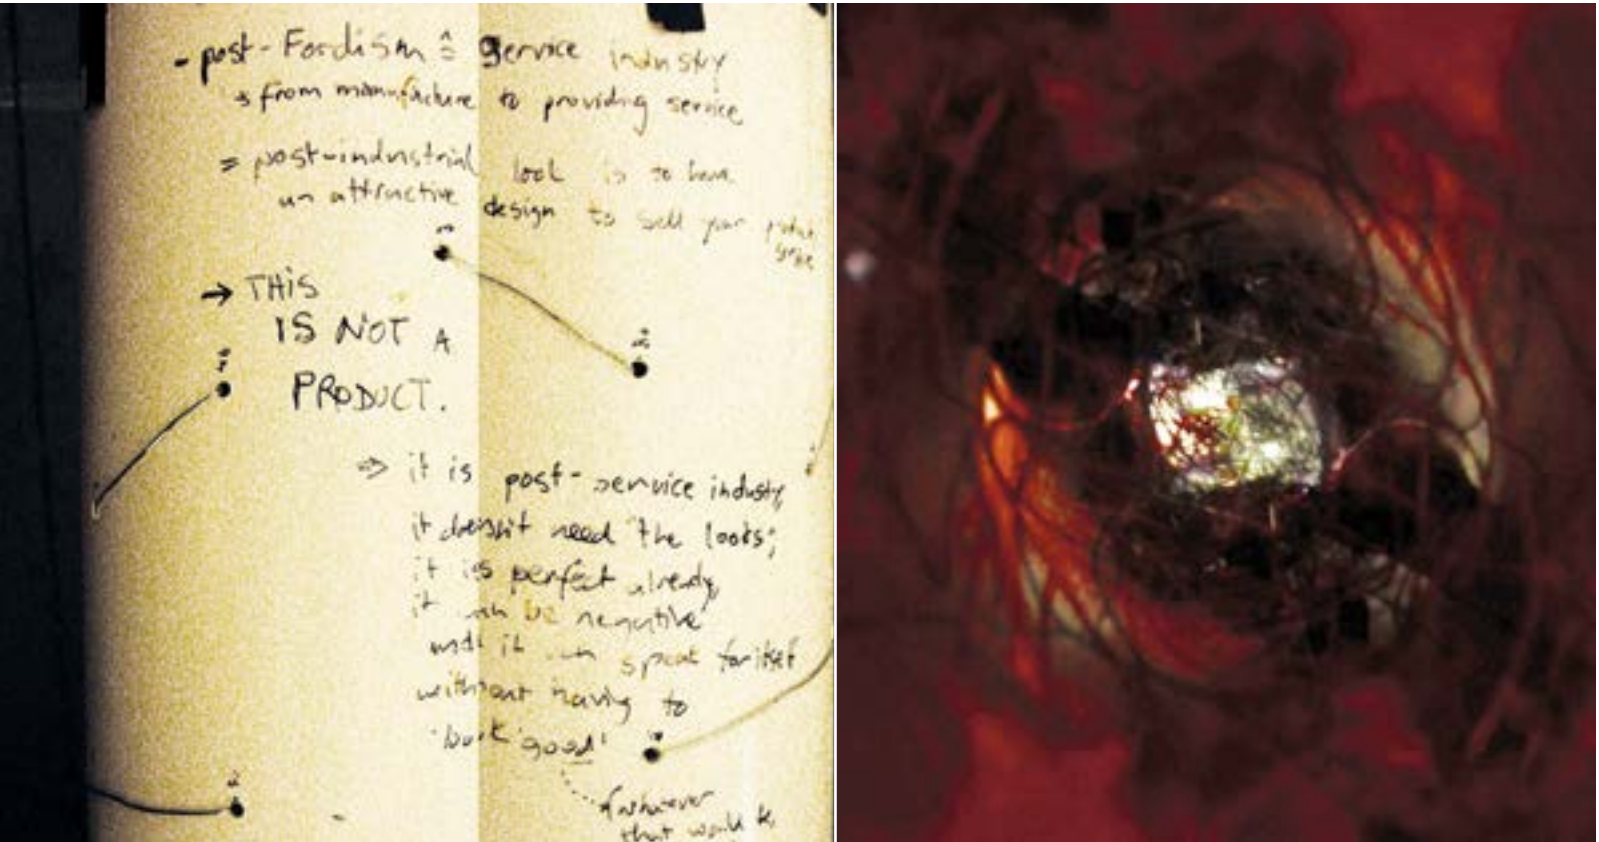 - post-Fordism ≙ service industry
→ from manufacture to providing service
= post-industrial look is to have
an attractive design to sell your
→ THIS
IS NOT A
PRODUCT.
⇒ it is post-service industry,
it doesn't need the looks;
it is perfect already,
it can be negative
and it can speak for itself
without having to
'look good'
(whatever
that would be